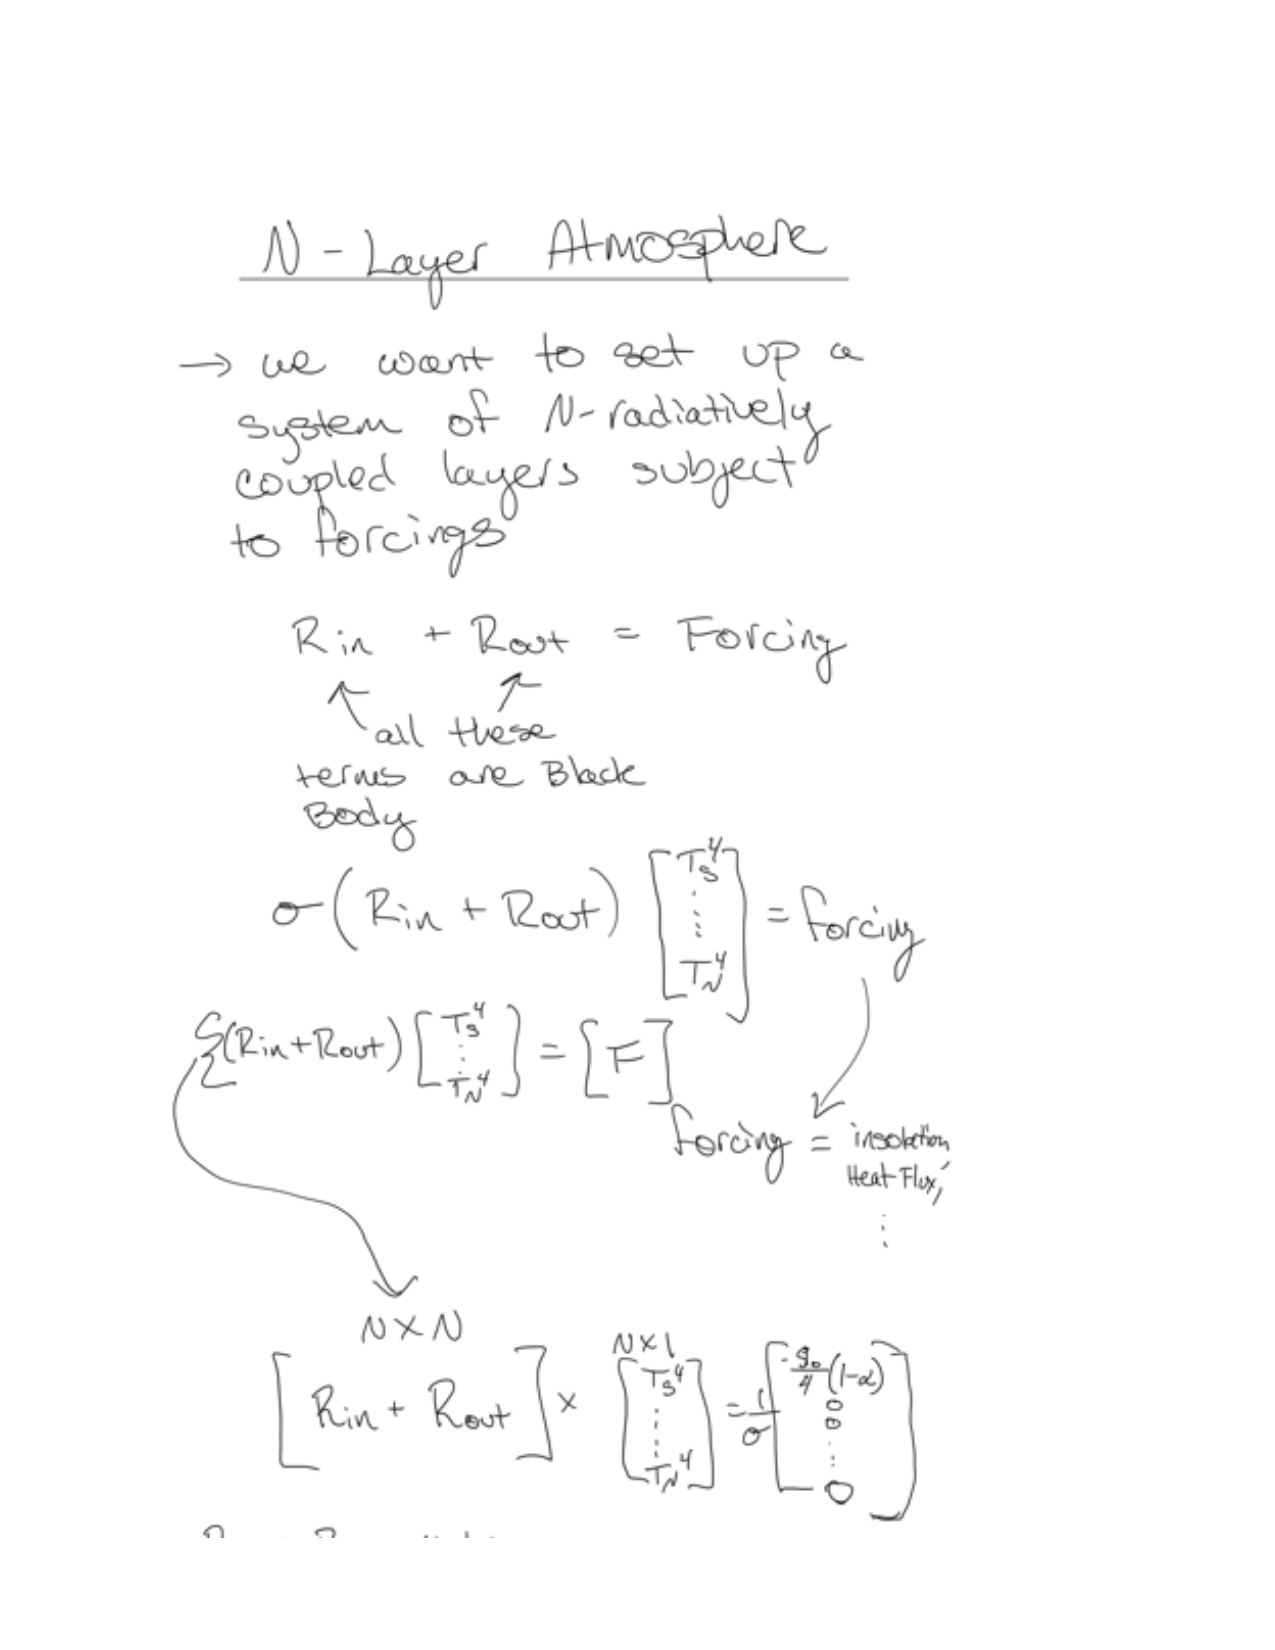 N - Layer Atmosphere
→ we want to set up a
system of N-radiatively
coupled layers subject
to forcings
Rin + Rout = Forcing
all these
terms are Black
Body
σ(Rin + Rout) [Ts⁴ ⋮ TN⁴] = forcing
(Rin+Rout) [Ts⁴ ⋮ TN⁴] = [F]
forcing = insolation
Heat Flux,
⋮
N×N N×1
[Rin + Rout] × [Ts⁴ ⋮ TN⁴] = 1/σ [-S₀/4 (1-α) 0 0 ⋮ 0]